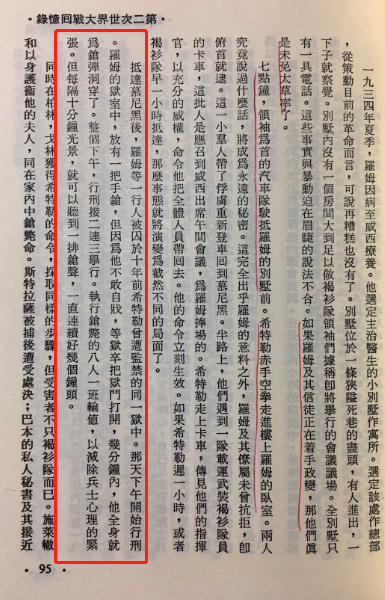 •第二次世界大戰囘憶錄•
一九三四年夏季，羅姆因病至威西療養。他選定主治醫生的小別墅作寓所。選定該處作總部
，從策動目前的革命而言，可說再糟糕也沒有了。別墅位於一條狹隘死巷的盡頭，有人進出，一
下子就察覺。別墅內沒有一個房間大到足以做褐衫隊領袖們據稱卽將舉行的會議議場。全別墅只
有一具電話。這些事實與暴動迫在眉睫的說法不合。如果羅姆及其信徒正在着手政變，那他們眞
是未免太草率了。
七點鐘，領袖爲首的汽車隊駛抵羅姆的別墅前。希特勒赤手空拳走進樓上羅姆的臥室。兩人
究竟說過什麼話，將成爲永遠的秘密。這完全出乎羅姆的意料之外，羅姆及其僚屬未曾抗拒，卽
俯首就逮。這一小羣人帶了俘虜重新登車回到慕尼黑。半路上，他們遇到一隊載運武裝褐衫隊員
的卡車，這批人是應召到威西出席午間會議，爲羅姆捧場的。希特勒走上卡車，傳見他們的指揮
官，以充分的威權，命令他把全體人員帶回去。他的命令立刻生效。如果希特勒遲一小時，或者
褐衫隊早一小時抵達，那麼事態就將演變爲截然不同的局面了。
抵達慕尼黑後，羅姆等一行人被囚於十年前希特勒曾遭監禁的同一獄中。那天下午開始行刑
。羅姆的獄室中，放有一把手鎗，但因爲他不敢自戕，等獄卒把獄門打開，幾分鐘內，他全身就
爲鎗彈洞穿了。整個下午，行刑接二連三舉行。執行鎗斃的八人一班輪値，以減除兵士心理的緊
張。但每隔十分鐘光景，就可以聽到一排鎗聲，一直連續好幾個鐘頭。
同時在柏林，戈林獲得希特勒的命令，採取同樣的步驟，但受害者不只褐衫隊而已。施萊轍
和以身護衞他的夫人，同在家內中鎗斃命。斯特拉薩被捕後遭受處決；巴本的私人秘書及其接近
•95•